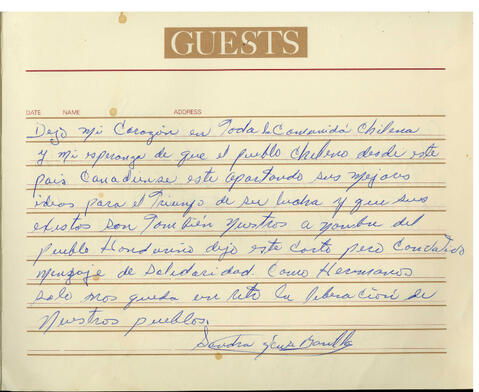 GUESTS
DATE NAME ADDRESS
Dejo mi Corazón en Toda la Comunidá Chilena
y mi esperanza de que el pueblo Chileno desde este
pais Canadiense este aportando sus mejores
ideas para el Triunfo de su lucha y que sus
existos son También Nuestros a nombre del
Pueblo Hondureño dejo este corto pero
mensaje de Solidaridad. Como Hermanos
solo nos queda un reto la liberación de
Nuestros pueblos.
Sandra